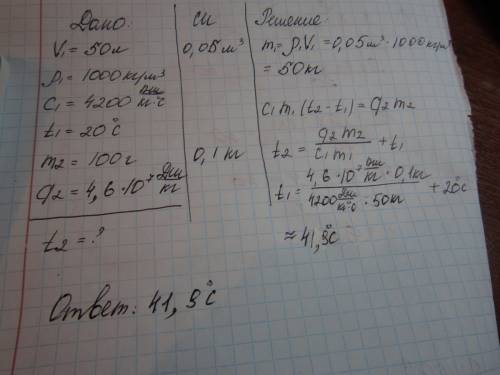 Дано:
V₁ = 50л
ρ₁ = 1000 кг/м³
c₁ = 4200 Дж/кг°C
t₁ = 20°C
m₂ = 100г
q₂ = 4,6·10⁷ Дж/кг
t₂ = ?
СИ
0,05 м³
0,1 кг
Решение:
m₁ = ρ₁V₁ = 0,05 м³ · 1000 кг/м³
= 50 кг
c₁m₁(t₂ - t₁) = q₂m₂
t₂ = q₂m₂/c₁m₁ + t₁
t₁ = 4,6·10⁷ Дж/кг · 0,1 кг / 4200 Дж/кг°C · 50 кг + 20°C
≈ 41,9°C
Ответ: 41,9°C